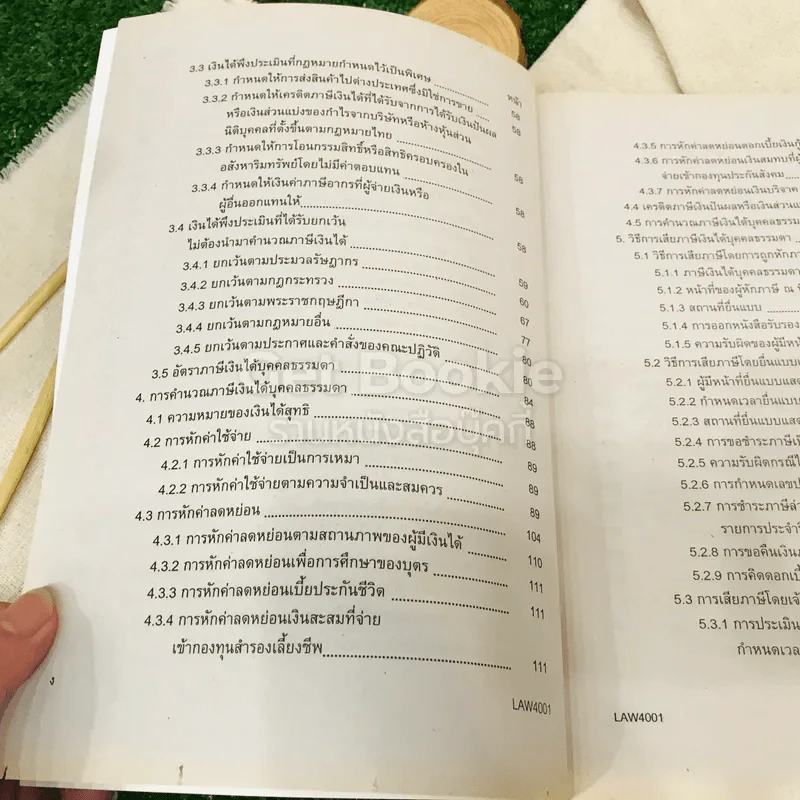 หน้า
3.3 เงินได้พึงประเมินที่กฎหมายกำหนดไว้เป็นพิเศษ
3.3.1 กำหนดให้การส่งสินค้าไปต่างประเทศซึ่งมิใช่การขาย 58
3.3.2 กำหนดให้เครดิตภาษีเงินได้ที่ได้รับจากการได้รับเงินปันผล 58
หรือเงินส่วนแบ่งของกำไรจากบริษัทหรือห้างหุ้นส่วน
นิติบุคคลที่ตั้งขึ้นตามกฎหมายไทย
3.3.3 กำหนดให้การโอนกรรมสิทธิ์หรือสิทธิครอบครองใน
อสังหาริมทรัพย์โดยไม่มีค่าตอบแทน 58
3.3.4 กำหนดให้เงินค่าภาษีอากรที่ผู้จ่ายเงินหรือ
ผู้อื่นออกแทนให้ 58
3.4 เงินได้พึงประเมินที่ได้รับยกเว้น
ไม่ต้องนำมาคำนวณภาษีเงินได้ 58
3.4.1 ยกเว้นตามประมวลรัษฎากร 59
3.4.2 ยกเว้นตามกฎกระทรวง 60
3.4.3 ยกเว้นตามพระราชกฤษฎีกา 67
3.4.4 ยกเว้นตามกฎหมายอื่น 77
3.4.5 ยกเว้นตามประกาศและคำสั่งของคณะปฏิวัติ 80
3.5 อัตราภาษีเงินได้บุคคลธรรมดา 80
4. การคำนวณภาษีเงินได้บุคคลธรรมดา 84
4.1 ความหมายของเงินได้สุทธิ 88
4.2 การหักค่าใช้จ่าย 88
4.2.1 การหักค่าใช้จ่ายเป็นการเหมา 89
4.2.2 การหักค่าใช้จ่ายตามความจำเป็นและสมควร 89
4.3 การหักค่าลดหย่อน 89
4.3.1 การหักค่าลดหย่อนตามสถานภาพของผู้มีเงินได้ 104
4.3.2 การหักค่าลดหย่อนเพื่อการศึกษาของบุตร 110
4.3.3 การหักค่าลดหย่อนเบี้ยประกันชีวิต 111
4.3.4 การหักค่าลดหย่อนเงินสะสมที่จ่าย 111
เข้ากองทุนสำรองเลี้ยงชีพ 111
ง
LAW4001
Bookie
ร้านหนังสือบุ๊คกี้
4.3.5 การหักค่าลดหย่อนดอกเบี้ยเงินกู้
4.3.6 การหักค่าลดหย่อนเงินสมทบที่ผู้
จ่ายเข้ากองทุนประกันสังคม
4.3.7 การหักค่าลดหย่อนเงินบริจาค
4.4 เครดิตภาษีเงินปันผลหรือเงินส่วนแ
4.5 การคำนวณภาษีเงินได้บุคคลธรรมด
5. วิธีการเสียภาษีเงินได้บุคคลธรรมดา
5.1 วิธีการเสียภาษีโดยการถูกหักภา
5.1.1 ภาษีเงินได้บุคคลธรรมดา
5.1.2 หน้าที่ของผู้หักภาษี ณ
5.1.3 สถานที่ยื่นแบบ
5.1.4 การออกหนังสือรับรอง
5.1.5 ความรับผิดของผู้มีหน้า
5.2 วิธีการเสียภาษีโดยยื่นแบบ
5.2.1 ผู้มีหน้าที่ยื่นแบบแสด
5.2.2 กำหนดเวลายื่นแบบ
5.2.3 สถานที่ยื่นแบบแสด
5.2.4 การขอชำระภาษีเ
5.2.5 ความรับผิดกรณีไ
5.2.6 การกำหนดเลขป
5.2.7 การชำระภาษีล่
รายการประจำปี
5.2.8 การขอคืนเงินภ
5.2.9 การคิดดอกเบี้
5.3 การเสียภาษีโดยเจ้
5.3.1 การประเมิน
กำหนดเวล
LAW4001